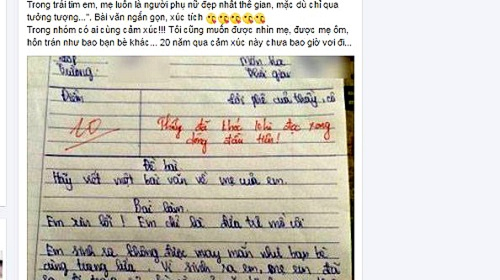 Trong trái tim em, mẹ luôn là người phụ nữ đẹp nhất thế gian, mặc dù chỉ qua
tưởng tượng...". Bài văn ngắn gọn, xúc tích
Trong nhóm có ai cùng cảm xúc!!! Tôi cũng muốn được nhìn mẹ, được mẹ ôm,
hôn trán như bao bạn bè khác... 20 năm qua cảm xúc này chưa bao giờ vơi đi...
Trường:
Điểm
Lời phê của thầy, cô
10
Thầy đã khóc khi đọc xong
dòng đầu tiên!
Đề bài
Hãy viết một bài văn về mẹ của em.
Bài làm
Em xin lỗi! Em chỉ là đứa trẻ mồ côi
Em sinh ra không được may mắn như bạn bè
cùng trang lứa. Vì sinh ra em, mẹ em đã